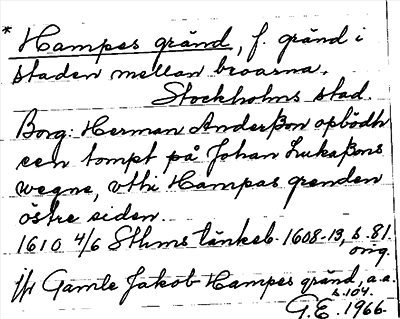 * Hampes gränd, f. gränd i
staden mellan broarna.
Stockholms stad.
Borg: Herman Anderßon opbödh
een tompt på Johan Lukaßons
wegne, vthi Hampas grenden
östre siden.
1610 4/6 Sthms tänkeb. 1608-13, s. 81.
orig.
Jfr Gamle Jakob Hampes gränd, a.a.
s. 104.
G.E. 1966.